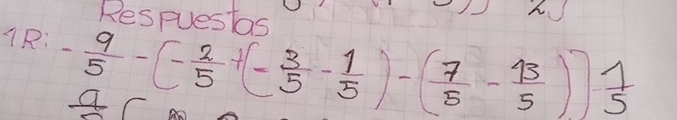 Respuestas
1R: - 9/5 - [- 2/5 + (- 3/5 - 1/5) - (7/5 - 13/5)] - 1/5